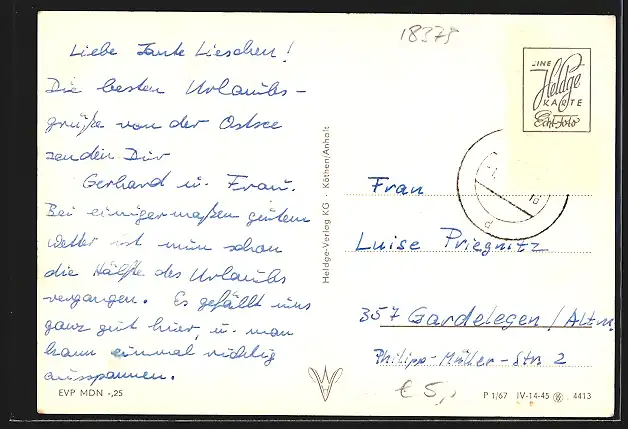 18375
Liebe Tante Lieschen!
Die besten Urlaubs-
grüße von der Ostsee
senden Dir
Gerhard u. Frau.
Bei einigermaßen gutem
Wetter ist nun schon
die Hälfte des Urlaubs
vergangen. Es gefällt uns
ganz gut hier, u. man
kann einmal richtig
ausspannen.
EVP MDN -,25
Heldge-Verlag KG · Köthen/Anhalt
EINE
Heldge
KARTE
Echt-Foto
Frau
Luise Priegnitz
357 Gardelegen / Altm.
Philipp-Müller-Str. 2
€ 5,-
P 1/67 IV-14-45 4413